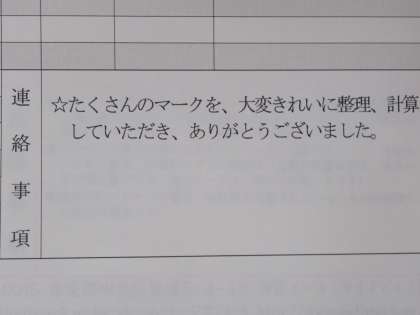 連絡事項
☆たくさんのマークを、大変きれいに整理、計算
していただき、ありがとうございました。